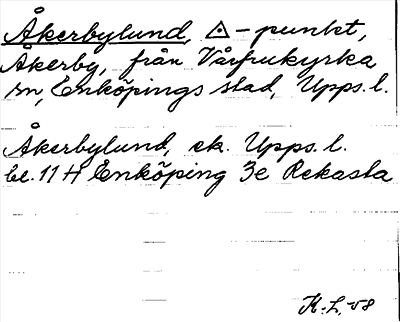 Åkerbylund, △-punkt,
Åkerby, från Vårfrukyrka
sn, Enköpings stad, Upps. l.
Åkerbylund, ek. Upps. l.
bl. 11 H Enköping 3e Rekasta
K-L, -58